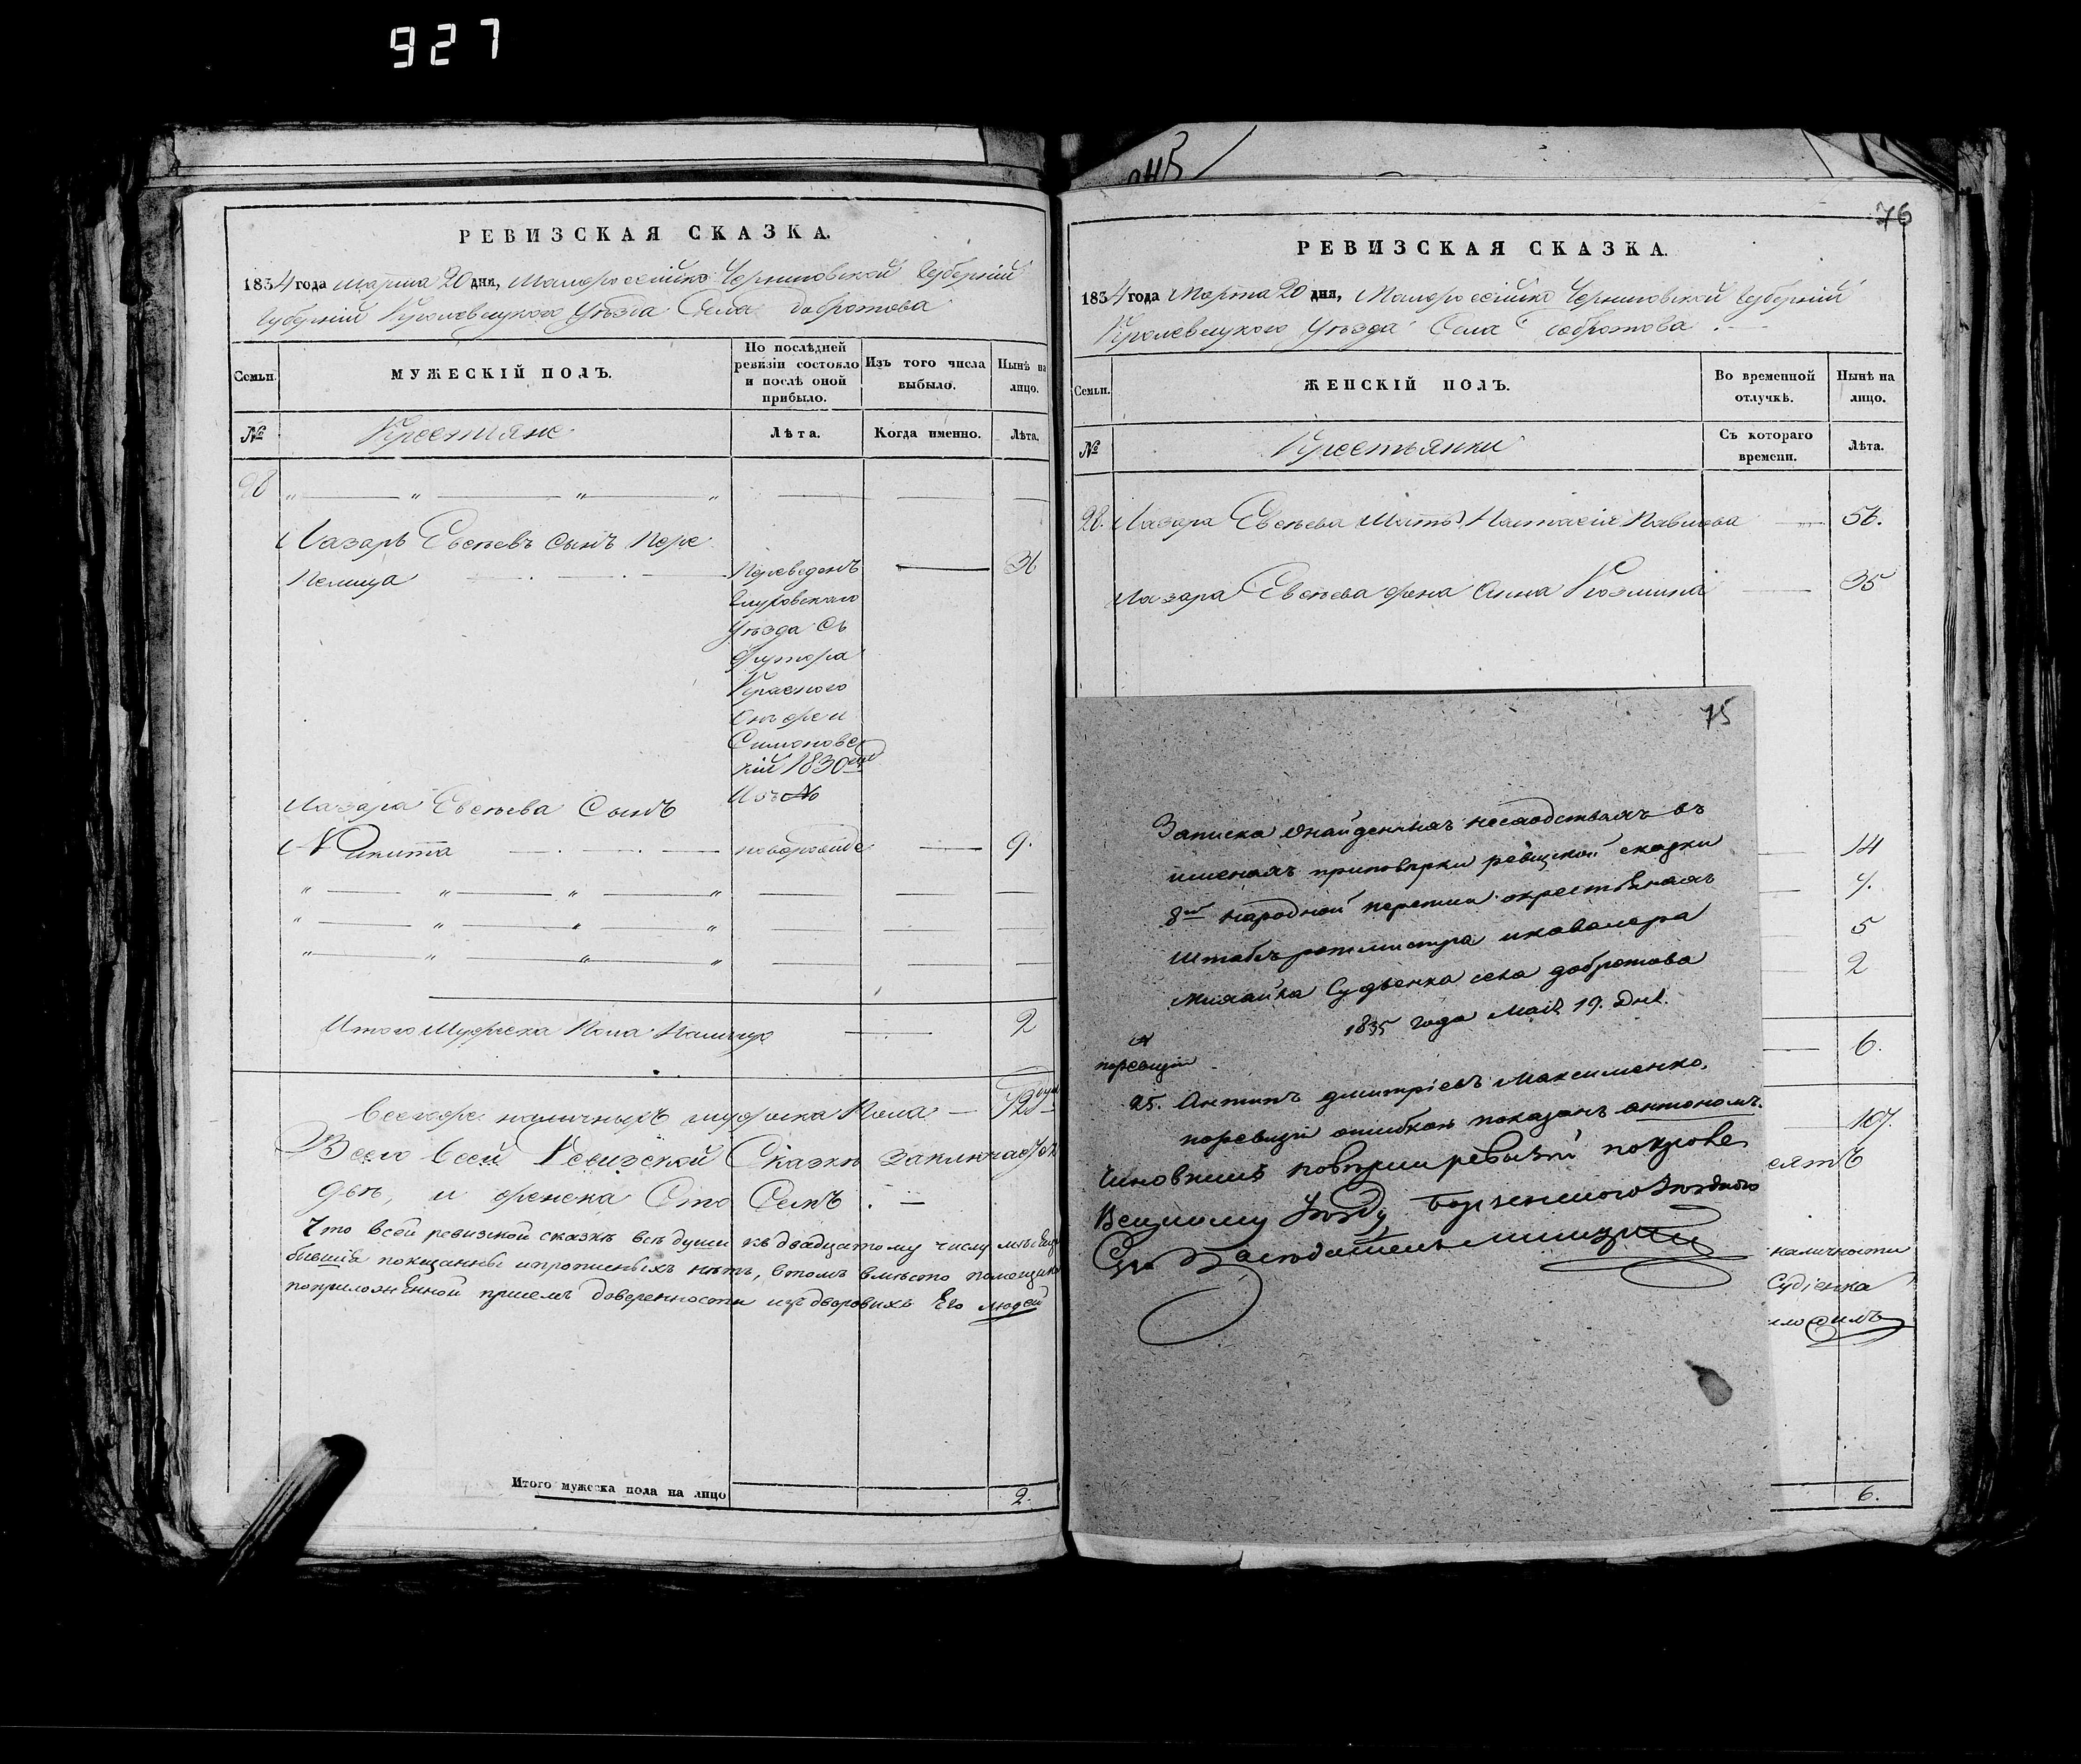 927
РЕВИЗСКАЯ СКАЗКА.
1834 года Марта 20 дня, Малоросійско Черниговской Губерній
Губерніи Кролевецкого Уѣзда Села Добротова
Семьи.
МУЖЕСКІЙ ПОЛЪ.
По послѣдней ревизіи состояло и послѣ оной прибыло.
Изъ того числа выбыло.
Нынѣ на лицо.
№
Крестьяне
Лѣта.
Когда именно.
Лѣта.
28
Лазарь Евсѣевъ Сынъ Пере
Пелица
Переведенъ
36
Глуховскаго
Уѣзда Съ
Хутора
Красного
Симоновс
кій 1830
Лазара Евсѣева Сынъ
Никита
новорожде
9.
Итого Мужеска Пола Налицо
2
Всегоже наличныхъ мужеска Пола
92
Всего Всей Ревизской Сказки Заключается
двѣ, и женска Сто Семъ
Что Всей ревизкой сказкѣ всѣ души къ двадцатому числу
бывшіе показанны и прописныхъ нѣтъ, втомъ вмѣсто помещика
поприложенной присемъ доверенности изъ дворовыхъ Его людей
Итого мужеска пола на лицо
2.
76
РЕВИЗСКАЯ СКАЗКА.
1834 года Марта 20 дня, Малоросійско Черниговской Губерній
Кролевецкого Уѣзда Села Добротова
Семьи.
ЖЕНСКІЙ ПОЛЪ.
Во временной отлучкѣ.
Нынѣ на лицо.
№
Крестьянки
Съ котораго времени.
Лѣта.
28. Лазара Евсѣева Мать Настасія Павлова
56.
Лазара Евсѣева жена Анна Козмина
35
14
7.
5
2
6.
107.
наличности
Судіенка
6.
75
Записка онайденныхъ несходствахъ въ
именахъ приповѣрки ревизкой сказки
8й народной переписи окрестьянахъ
Штабъ ротмистра икавалера
Михайла Судьенка села добротова
1835 года Мая 19. Дня.
№
поревизіи
25. Антипъ дмитріевъ Максименко,
поревизіи ошибкою показанъ антономъ.
Чиновникъ повѣрки ревизіи покроле
Вецкому Уѣзду Борзенского